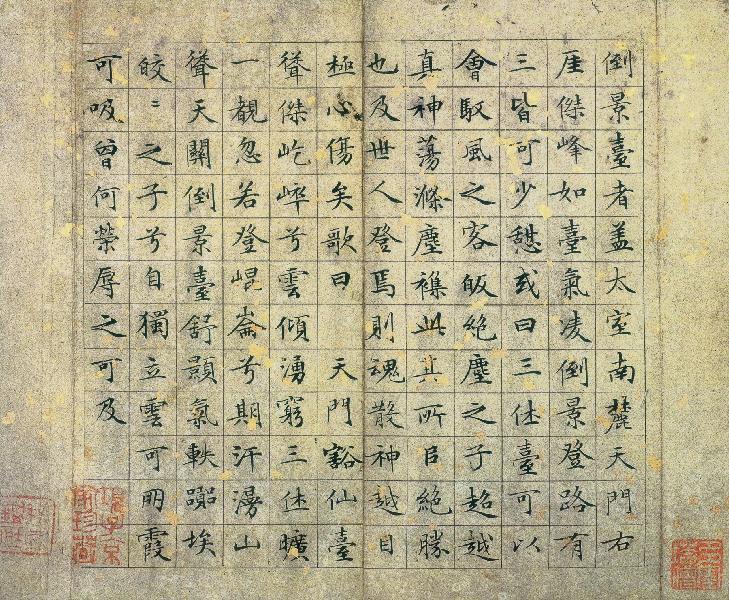 倒景臺者盖太室南麓天門右
厓傑峰如臺氣凌倒景登路有
三皆可少憩或曰三休臺可以
會馭風之客皈絕塵之子超越
真神蕩滌塵襟此其所㠯絕勝
也及世人登焉則魂散神越目
極心傷矣歌曰 天門豁仙臺
聳傑屹崒兮雲傾湧窮三休曠
一覩忽若登崐崙兮期汗漫山
聳天關倒景臺舒顥氣軼囂埃
皎〻之子兮自獨立雲可朋霞
可吸曾何榮辱之可及